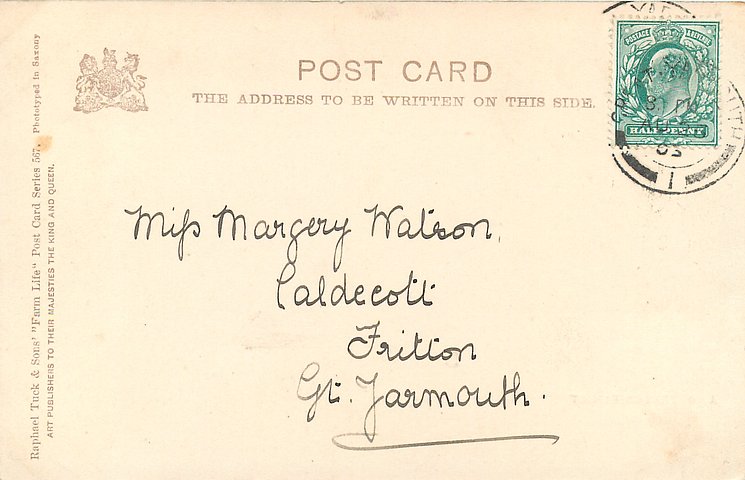 POST CARD
THE ADDRESS TO BE WRITTEN ON THIS SIDE.
POSTAGE & REVENUE
HALF PENNY
8 PM
1
Miſs Margery Watson,
Caldecott
Fritton
Gt. Yarmouth.
Raphael Tuck & Sons' "Farm Life" Post Card Series 567. Phototyped in Saxony
ART PUBLISHERS TO THEIR MAJESTIES THE KING AND QUEEN.